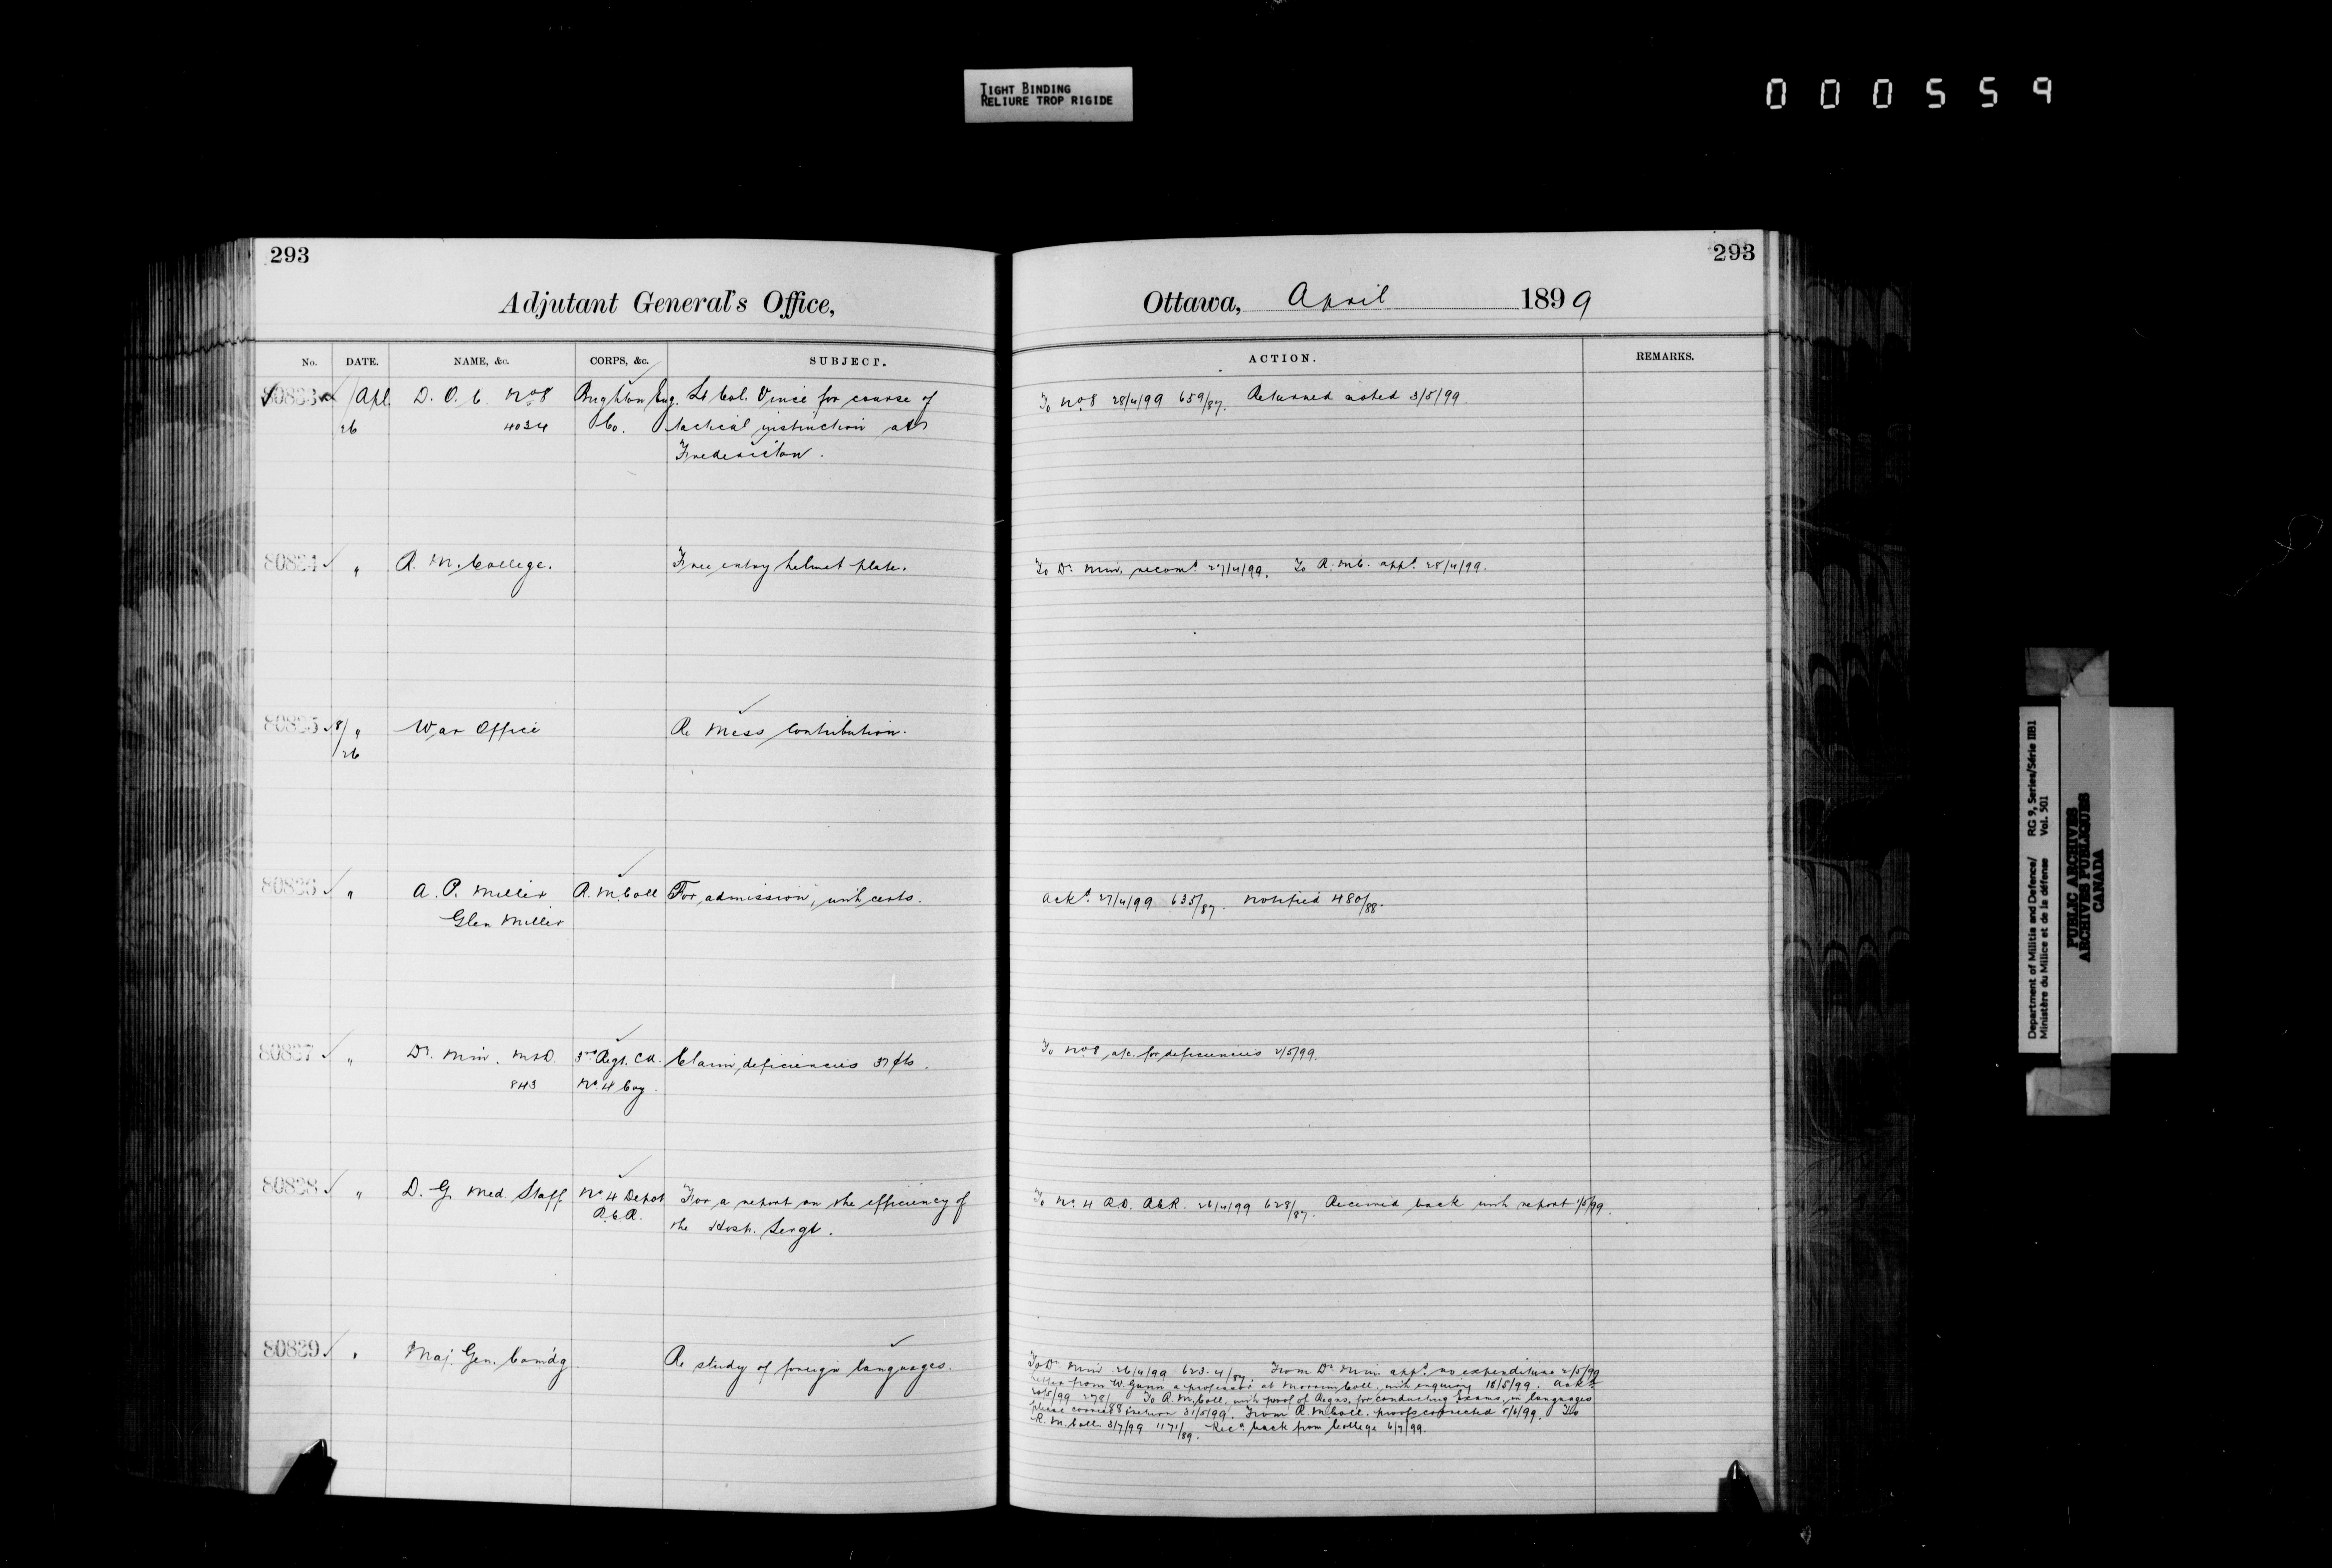 TIGHT BINDING
RELIURE TROP RIGIDE
000559
293
293
Adjutant General's Office,
Ottawa, April 1899
No. DATE. NAME, &c. CORPS, &c. SUBJECT. ACTION. REMARKS.
Apl. D. O. C. No 8 Brighton Eng. Lt Col. Vince for course of To No 8 28/4/99 659/87. Returned noted 3/5/99
26 4034 Co. tactical instruction at
Fredericton.
80824 " R. M. College. Free entry helmet plate. To Dr. Min. recomd. 27/4/99. To R. M C. appd. 28/4/99.
80825 8/ " War Office Re Mess Contribution.
26
80826 " A. P. Miller R. M Coll For admission, with certs. Ackd. 27/4/99 635/87. Notified 480/88.
Glen Miller
80827 " Dr. Min. M&D. 3rd Regt. CA. Claim deficiencies 37 cts. To No 8 a/c. for deficiencies 2/5/99.
843 No. 4 Coy.
80828 " D. G. Med. Staff No 4 Depot For a report on the efficiency of To No. 4 R.D. RCR. 26/4/99 628/87. Received back with report 1/5/99.
R.C.R. the Hosp. Sergt.
80829 " Maj. Gen. Comdg. Re study of foreign languages. To Dr Min 26/4/99 623.4/87. From Dr. Min. appd. no expenditure 2/5/99
Letter from W. Gunn a professor at Morrin Coll. with enquiry 18/5/99. Ackd
20/5/99 278/88 To R. M. Coll. with proof of Regns. for conducting Exams. in languages
please correct & return 31/5/99. From R. M. Coll. proofs corrected 5/6/99. To
R. M. Coll. 3/7/99 1171/89. Recd. back from College 6/7/99.
Department of Militia and Defence/ RG 9, Series/Série IIB1
Ministère du Milice et de la défense Vol. 501
PUBLIC ARCHIVES
ARCHIVES PUBLIQUES
CANADA